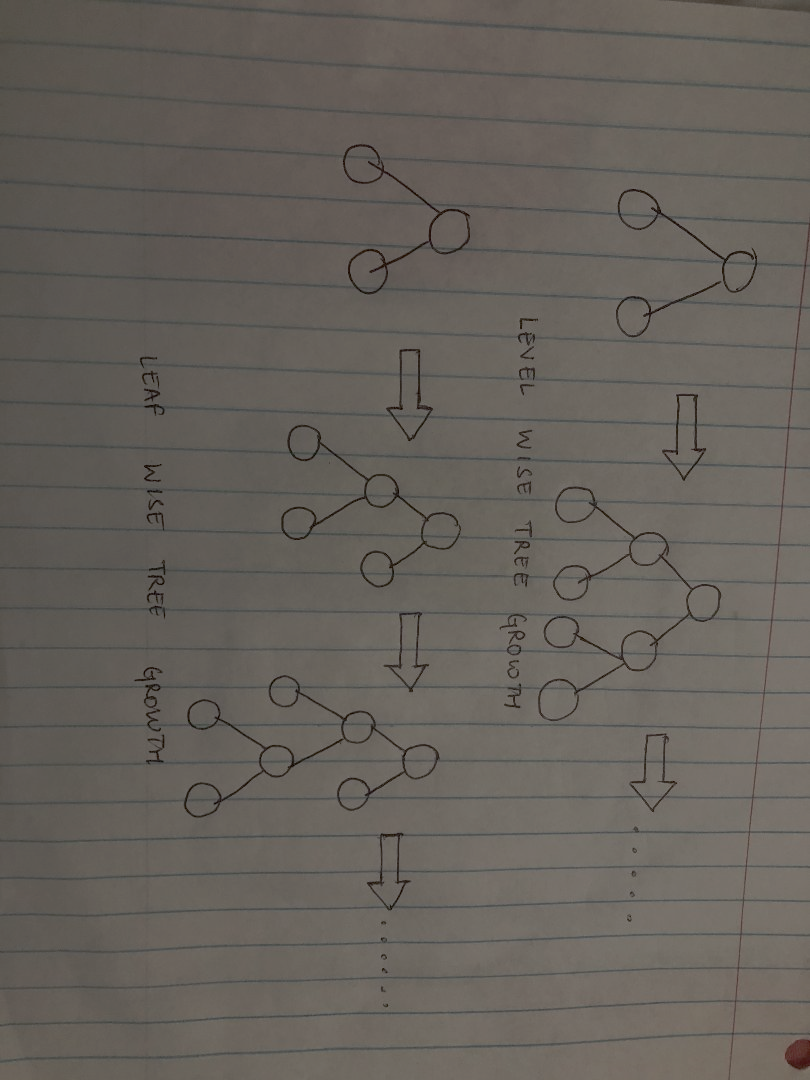 LEVEL WISE TREE GROWTH
LEAF WISE TREE GROWTH